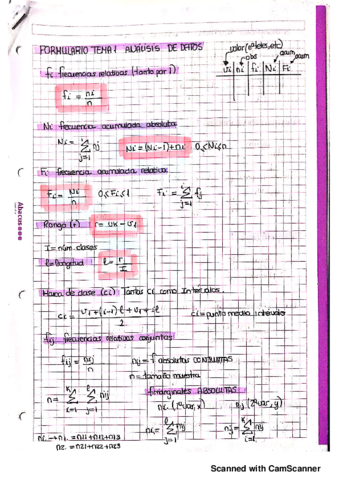 FORMULARIO TEMA 1 ANÁLISIS DE DATOS
valor (nº hijos, etc)
abs
acum
acum
vi ni fi Ni Fi
fi frecuencias relativas (tanto por 1)
fi = ni/n
Ni frecuencia acumulada absoluta
Ni = Σ nj
j=1
Ni = (Ni-1)+ni
0≤Ni≤n
Fi frecuencia acumulada relativa
Fi = Ni/n
0≤Fi≤1
Fi = Σ fj
j=1
Rango (r)
r = vk - v1
I = núm. clases
l = longitud
l = r/I
Marca de clase (ci) Tantas ci como Intervalos.
ci = v1+(i-1)l+v1+il / 2
ci = punto medio intervalo
fij frecuencias relativas conjuntas
fij = nij/n
nij = f absolutas CONJUNTAS
n = tamaño muestra
n = Σ Σ nij
i=1 j=1
f marginales ABSOLUTAS
ni. (1ª var, x)
n.j (2ª var, y)
ni. = Σ nij
j=1
n.j = Σ nij
i=1
n1. = n11+n12+n13
n2. = n21+n22+n23
Abacus
Scanned with CamScanner